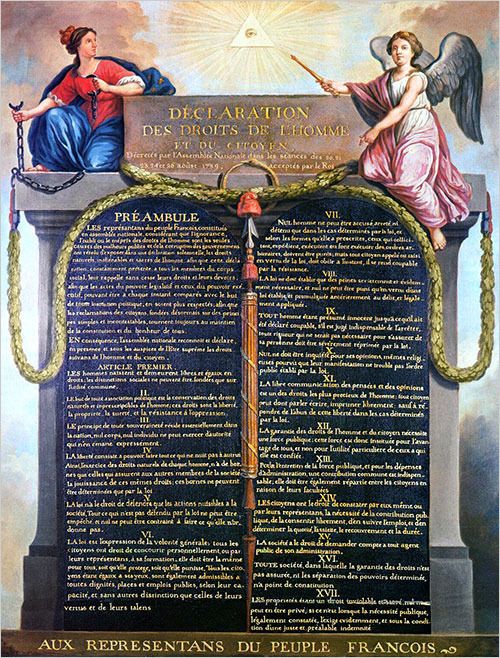 DÉCLARATION
DES DROITS DE L'HOMME
ET DU CITOYEN,
Décrétés par l'Assemblée Nationale dans les séances des 20, 21
23, 24 et 26 août 1789, acceptés par le Roi
PRÉAMBULE
LES représentans du peuple François, constitués
en assemblée nationale, considérant que l'ignorance,
l'oubli ou le mépris des droits de l'homme sont les seules
causes des malheurs publics et de la corruption des gouvernemens
ont résolu d'exposer dans une déclaration solemnelle, les droits
naturels, inaliénables et sacrés de l'homme: afin que cette décla-
ration, constamment présente à tous les membres du corps
social, leur rappelle sans cesse leurs droits et leurs devoirs;
afin que les actes du pouvoir législatif et ceux du pouvoir exé-
cutif, pouvant être à chaque instant comparés avec le but
de toute institution politique, en soient plus respectés; afin que
les réclamations des citoyens, fondées désormais sur des princi-
pes simples et incontestables, tournent toujours au maintien
de la constitution et du bonheur de tous.
EN conséquence, l'assemblée nationale reconnoit et déclare,
en présence et sous les auspices de l'Etre suprême les droits
suivans de l'homme et du citoyen.
ARTICLE PREMIER.
LES hommes naissent et demeurent libres et égaux en
droits; les distinctions sociales ne peuvent être fondées que sur
l'utilité commune.
II.
LE but de toute association politique est la conservation des droits
naturels et imprescriptibles de l'homme; ces droits sont la liberté,
la propriété, la sureté, et la résistance à l'oppression.
III.
LE principe de toute souveraineté réside essentiellement dans
la nation, nul corps, nul individu ne peut exercer d'autorité
qui n'en émane expressement.
IV.
LA liberté consiste à pouvoir faire tout ce qui ne nuit pas à autrui
Ainsi, l'exercice des droits naturels de chaque homme, n'a de bor-
nes que celles qui assurent aux autres membres de la société
la jouissance de ces mêmes droits; ces bornes ne peuvent
être déterminées que par la loi
V.
LA loi n'a le droit de défendre que les actions nuisibles à la
société. Tout ce qui n'est pas défendu par la loi ne peut être
empêché, et nul ne peut être contraint à faire ce qu'elle n'or-
donne pas.
VI.
LA loi est l'expression de la volonté générale; tous les
citoyens ont droit de concourir personnellement, ou par
leurs représentans, à sa formation; elle doit être la même
pour tous, soit qu'elle protège, soit qu'elle punisse, Tous les cito-
yens étant égaux à ses yeux, sont également admissibles à
toutes dignités, places et emplois publics, selon leur ca-
pacité, et sans autres distinction que celles de leurs
vertus et de leurs talens
VII.
NUL homme ne peut être accusé, arreté, ni
détenu que dans les cas déterminés par la loi, et
selon les formes qu'elle a prescrites, ceux qui sollici-
tent, expédient, exécutent ou font exécuter des ordres ar-
bitraires, doivent être punis; mais tout citoyen appelé ou saisi
en vertu de la loi, doit obéir à l'instant, il se rend coupable
par la résistance.
VIII.
LA loi ne doit établir que des peines strictement et évidem-
ment nécessaire, et nul ne peut être puni qu'en vertu d'une
loi établie et promulguée antérieurement au délit, et légale-
ment appliquée.
IX.
TOUT homme étant présumé innocent jusqu'à ce qu'il ait
été déclaré coupable, s'il est jugé indispensable de l'arrêter,
toute rigueur qui ne serait pas nécessaire pour s'assurer de
sa personne doit être sévèrement réprimée par la loi.
X.
NUL ne doit être inquiété pour ses opinions, mêmes religi-
euses pourvu que leur manifestation ne trouble pas l'ordre
public établi par la loi.
XI.
LA libre communication des pensées et des opinions
est un des droits les plus précieux de l'homme: tout citoyen
peut donc parler, écrire, imprimer librement: sauf à ré-
pondre de l'abus de cette liberté dans les cas déterminés
par la loi.
XII.
LA garantie des droits de l'homme et du citoyen nécessite
une force publique; cette force est donc instituée pour l'avan-
tage de tous, et non pour l'utilité particulière de ceux a qui
elle est confiée.
XIII.
POUR l'entretien de la force publique, et pour les dépenses
d'administration, une contribution commune est indispen-
sable; elle doit être également répartie entre les citoyens en
raison de leurs facultés
XIV.
LES citoyens ont le droit de constater par eux même ou
par leurs représentans, la nécessité de la contribution pub-
lique, de la consentir librement, d'en suivre l'emploi, et d'en
déterminer la quotité, l'assiette, le recouvrement et la durée.
XV.
LA société a le droit de demander compte à tout agent
public de son administration.
XVI.
TOUTE société, dans laquelle la garantie des droits n'est
pas assurée, ni les séparation des pouvoirs déterminée,
n'a point de constitution
XVII.
LES propriétés étant un droit inviolable et sacré, nul ne
peut en être privé, si ce n'est lorsque la nécessité publique,
légalement constatée, l'exige évidemment, et sous la condi-
tion d'une juste et préalable indemnité
AUX REPRESENTANS DU PEUPLE FRANCOIS